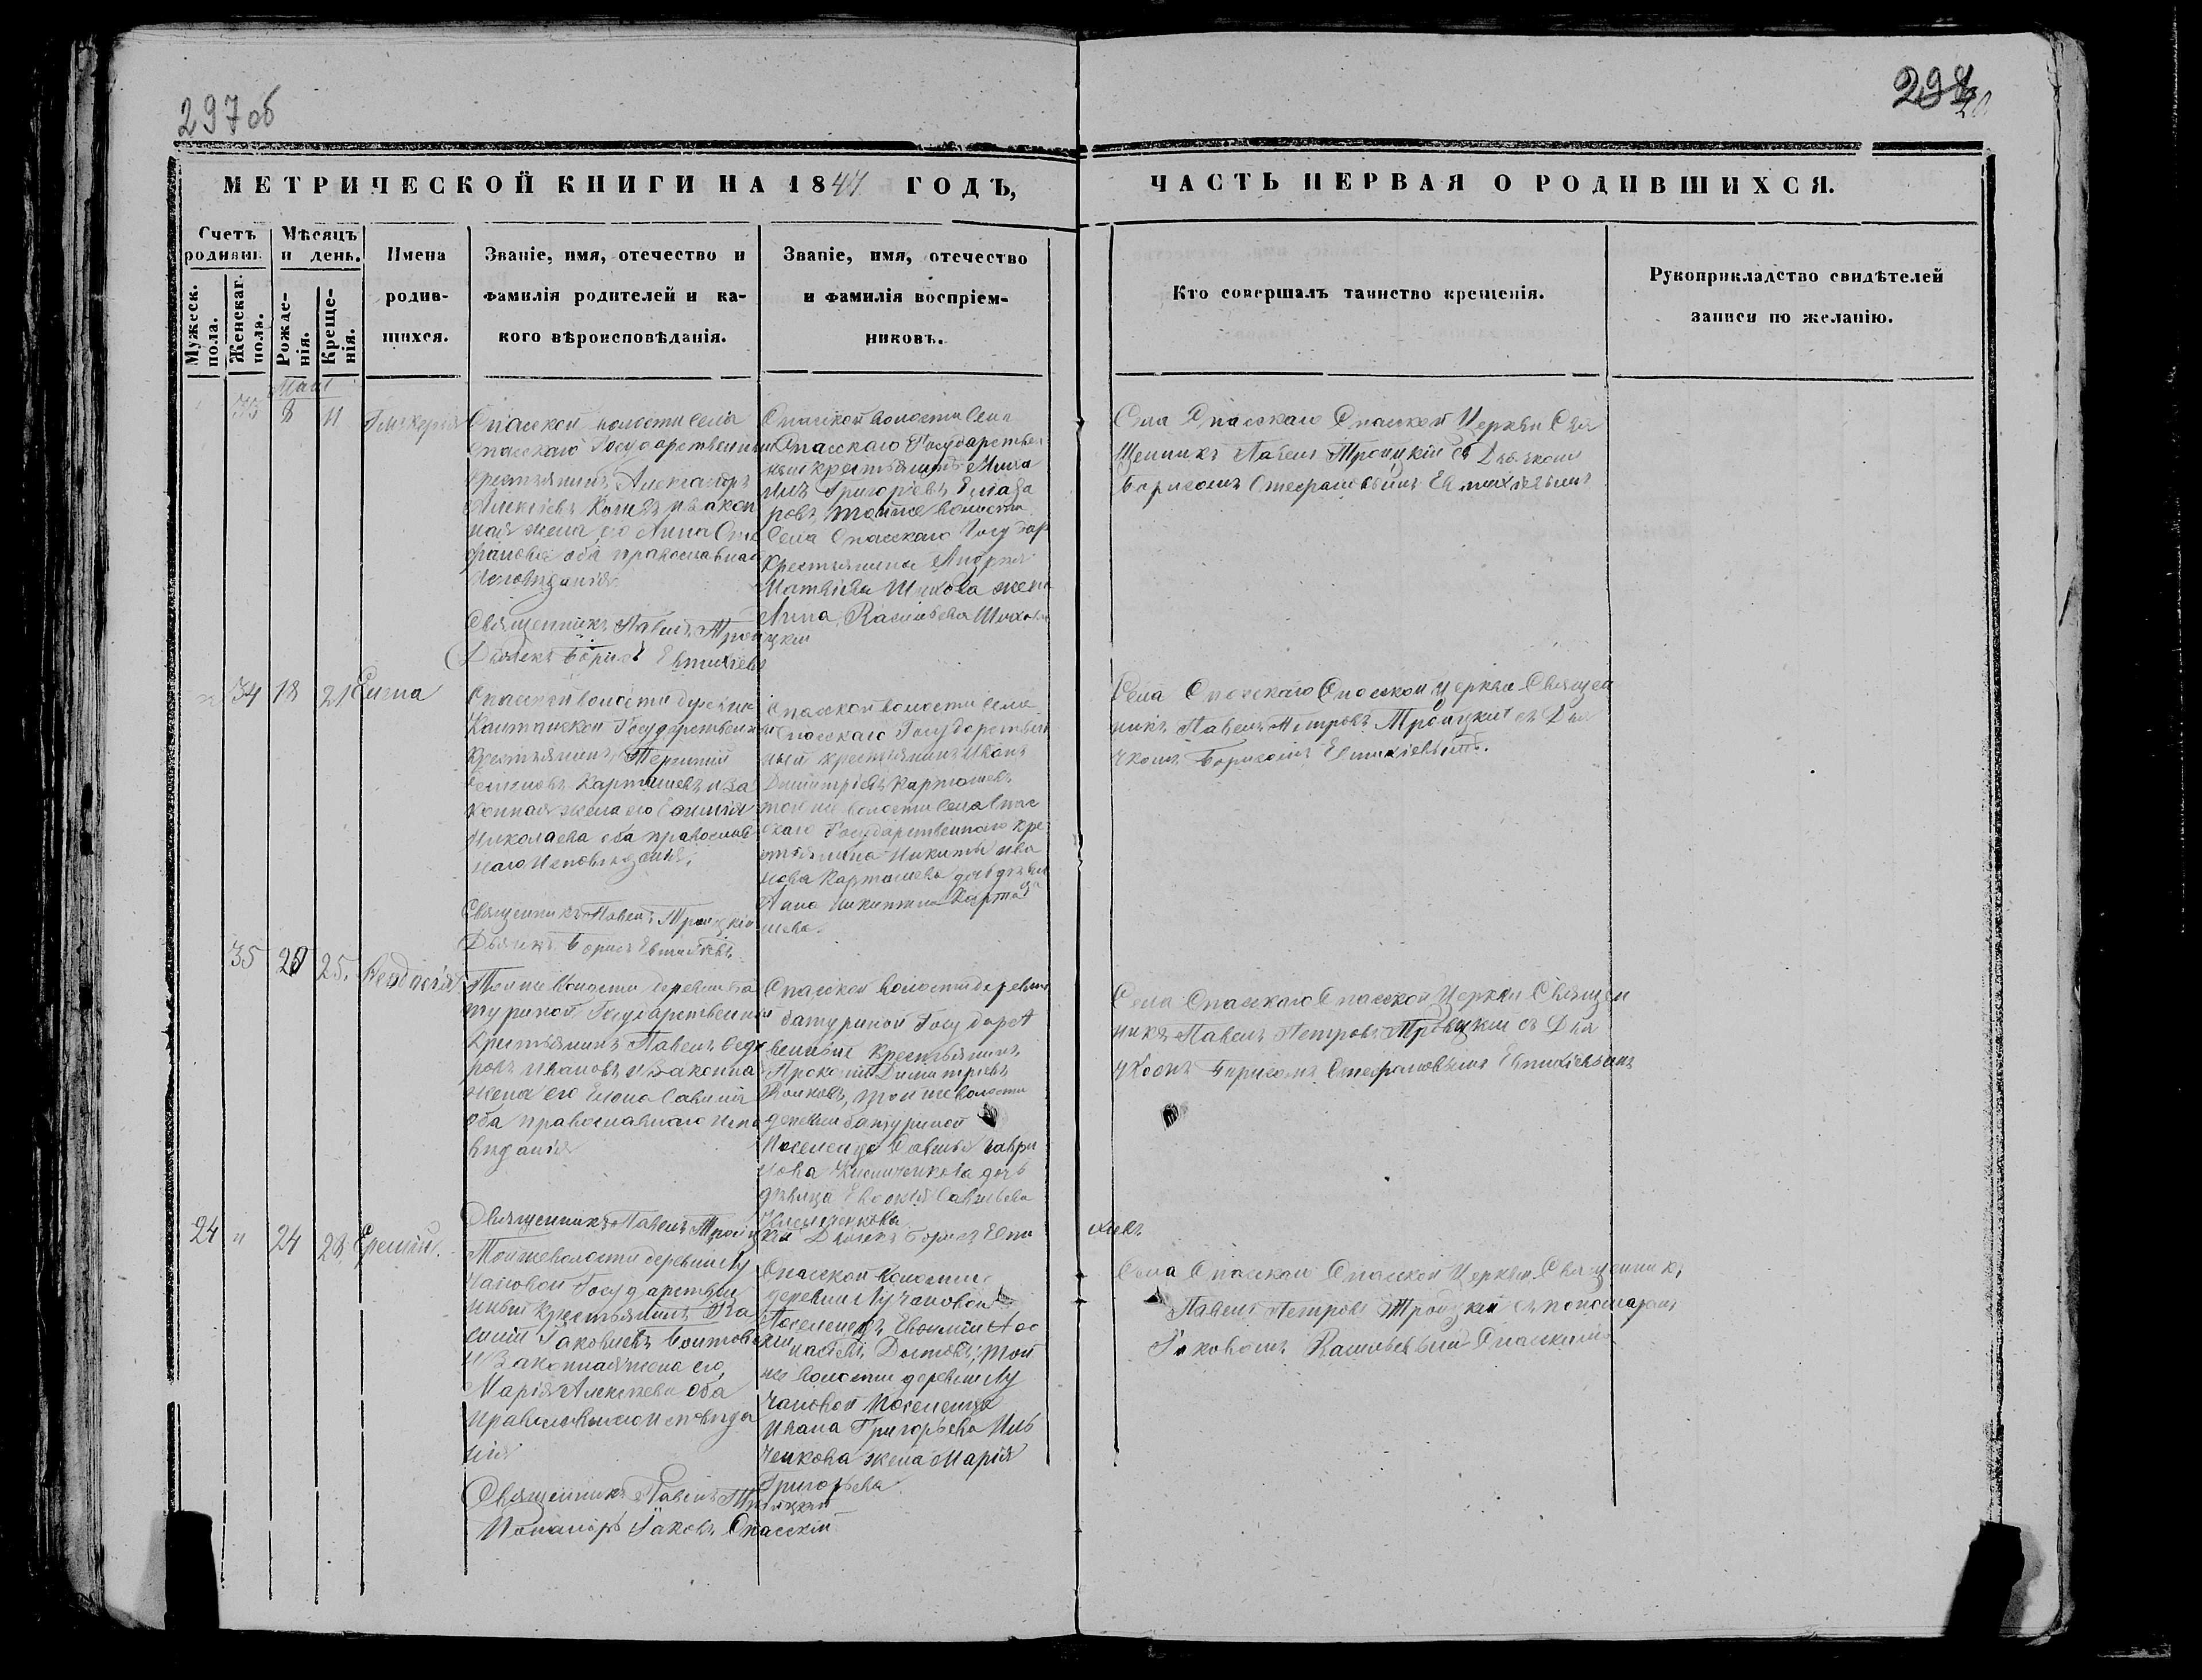 297об
298
МЕТРИЧЕСКОЙ КНИГИ НА 1844 ГОДЪ,
ЧАСТЬ ПЕРВАЯ О РОДИВШИХСЯ.
Счетъ родивш.
Мужеск. пола.
Женскаг. пола.
Мѣсяцъ и день.
Рожде-
нія.
Креще-
нія.
Имена
родив-
шихся.
Званіе, имя, отечество и
фамилія родителей и ка-
кого вѣроисповѣданія.
Званіе, имя, отечество
и фамилія воспріем-
никовъ.
Кто совершалъ таинство крещенія.
Рукоприкладство свидѣтелей
записи по желанію.
Маій
33 8 11 Гликерія
Спаской волости села
Спасскаго Государственный
крестьянинъ Александръ
Алексіевъ и закон
ная жена его Анна Сте
фанова оба православнаго
исповѣданія
Священникъ Павелъ Троицкій
Дьячекъ Борисъ Евтихіевъ
Спаской волости села
Спасскаго Государствен
ный крестьянинъ Миха
илъ Григорьевъ Елиза
ровъ, тойже волости
Села Спасскаго Государ
крестьянина Андрея
Матвѣева жена
Анна Васильева
Села Спасскаго Спаской Церкви Свя
щенникъ Павелъ Троицкій съ Дьячкомъ
Борисомъ Стефановымъ Евтихіевымъ
34 18 21 Елена
Спаской волости деревни
Государственный
Крестьянинъ Терентий
Карташевъ и За
конная жена его Евфимія
Николаева оба православ
наго Исповѣданія;
Священникъ Павелъ Троицкій
Дьячекъ Борисъ Евтихіевъ
Спаской волости села
Спасскаго Государствен
ный крестьянинъ Иванъ
Димитріевъ Карташевъ
той же волости села Спас
скаго Государственнаго кре
стьянина Никиты Ива
нова Карташева дочь дѣвица
Анна Никитина Карта
шева.
Села Спасскаго Спаской Церкви Священ
никъ Павелъ Петровъ Троицкій съ Дья
чкомъ Борисомъ Евтихіевымъ.
35 20 25. Феодосія
Тойже Волости деревни Ба
туриной Государственный
Крестьянинъ Павелъ Федо
ровъ Ивановъ и Законна
жена его Елена Савина
оба православнаго испо
вѣданія
Священникъ Павелъ Троиц
кій Дьячекъ Борисъ Евти
хіевъ
Спаской волости деревни
Батуриной Государст
венный Крестьянинъ
Прокопій Димитріевъ
Волковъ, той же волости
деревни Батуриной
Поселенца Савелья Гаври
лова дочь
дѣвица Евдокія Савельева
Села Спасскаго Спаской Церкви Священ
никъ Павелъ Петровъ Троицкій съ Дья
чкомъ Борисомъ Стефановымъ Евтихіевымъ
24 " 24 28 Еремій.
Тойже волости деревни Лу
чановой Государствен
ный Крестьянинъ Ва
силій Яковлевъ Войтовъ
и Законная жена его,
Марія Алексѣева оба
православнаго исповѣда
нія
Священникъ Павелъ Троицкій
Пономарь Іаковъ Спасскій
Спасской Волости
деревни Лучановой
Поселенецъ Евфимій
той
же волости деревни Лу
чановой Поселенца
Ивана Григорьева Иль
ченкова жена Марія
Григорьева.
Села Спасскаго Спаской Церкви Священникъ
Павелъ Петровъ Троицкій съ пономаремъ
Іаковомъ Васильевымъ Спасскимъ